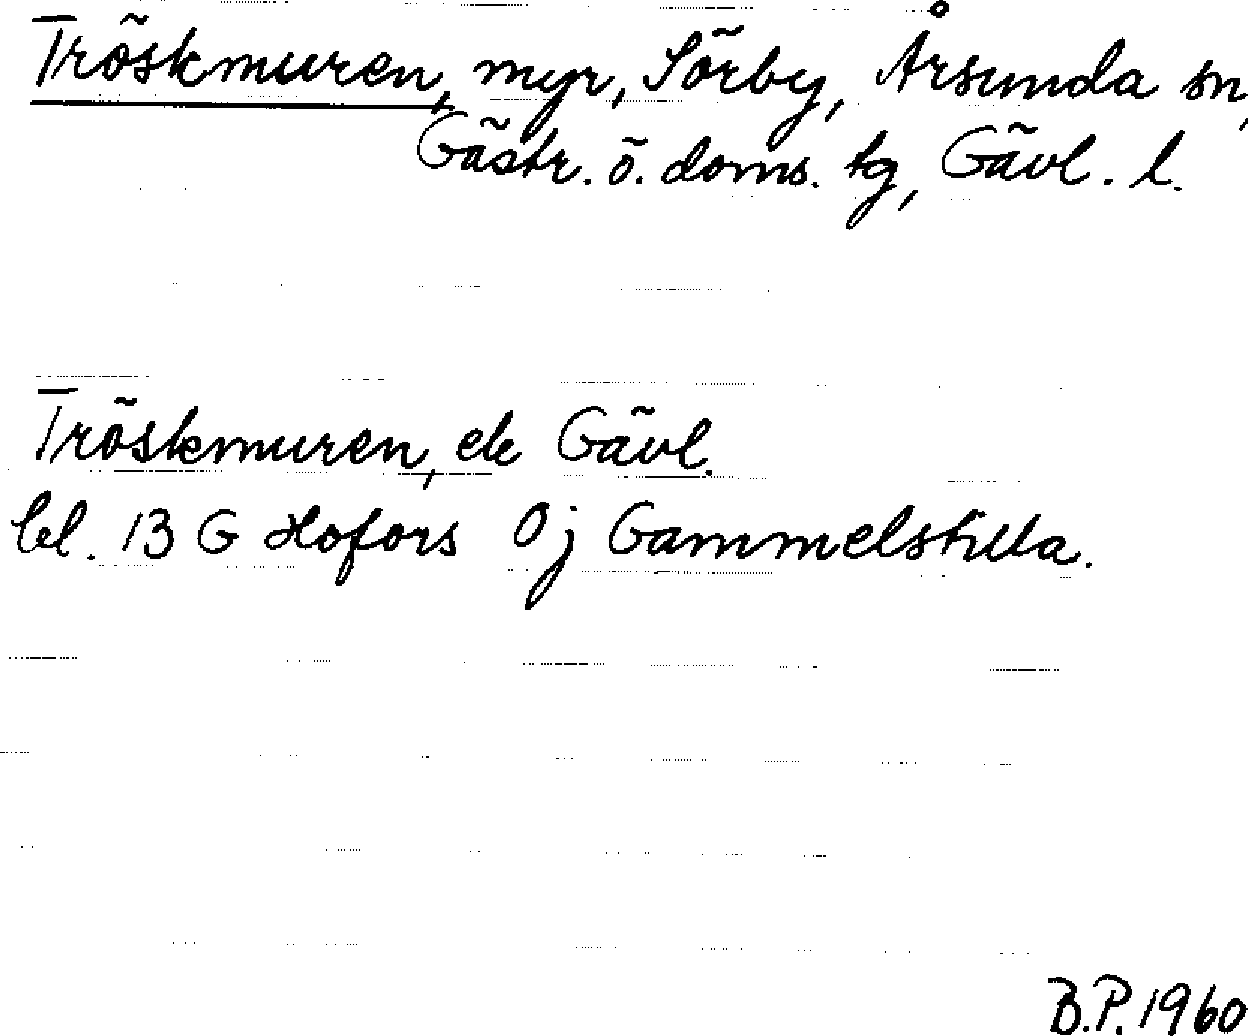 Tröskmuren, myr, Sörby, Årsunda sn,
Gästr. ö. doms. tg, Gävl. l.
Tröskmuren, ek Gävl.
bl. 13 G Hofors 0j Gammelstilla.
B.P. 1960